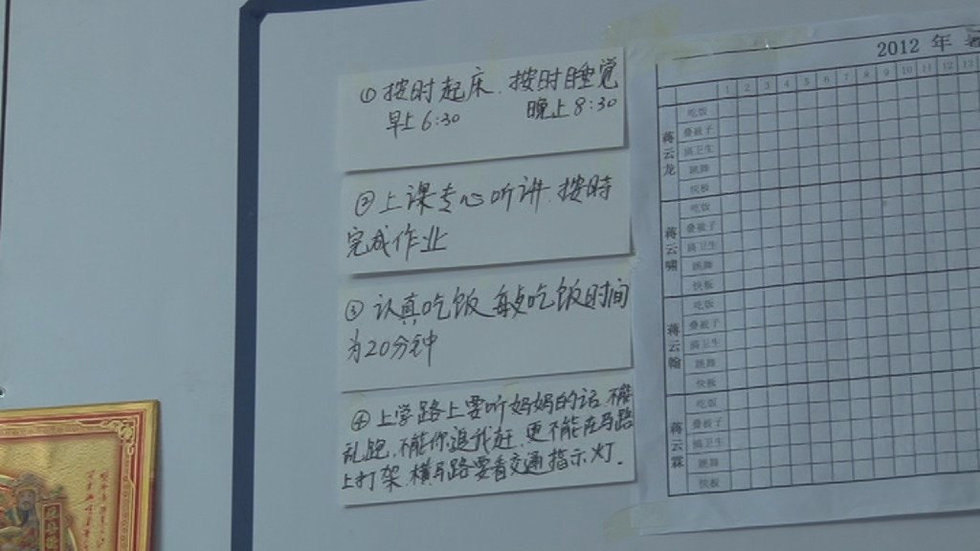 ①按时起床.按时睡觉
早上6:30 晚上8:30
②上课专心听讲.按時
完成作业
③认真吃饭 每点吃饭时间
为20分钟
④上学路上要听妈妈的话.不能
乱跑.不能你追我赶.更不能在马路
上打架.横马路要看交通指示灯.
2012 年
1 2 3 4 5 6 7 8 9 10 11 12 13
蒋云龙
吃饭
叠被子
搞卫生
跳舞
快板
蒋云啸
吃饭
叠被子
搞卫生
跳舞
快板
蒋云翰
吃饭
叠被子
搞卫生
跳舞
快板
蒋云霖
吃饭
叠被子
搞卫生
跳舞
快板